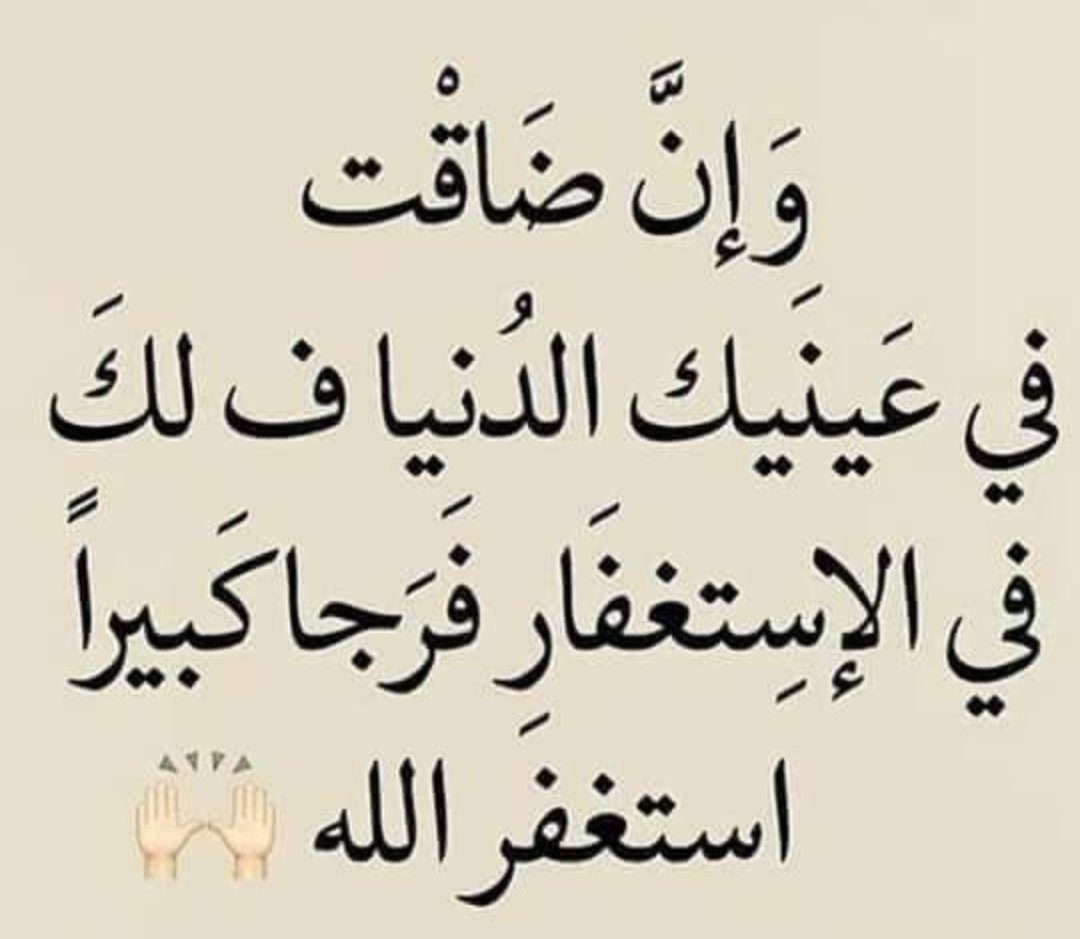 وَإنَّ ضَاقْت
في عَينَيك الدُنيا ف لكَ
في الإسِتغفَارِ فَرَجا كَبيراً
استغفَر الله 🙌🏻